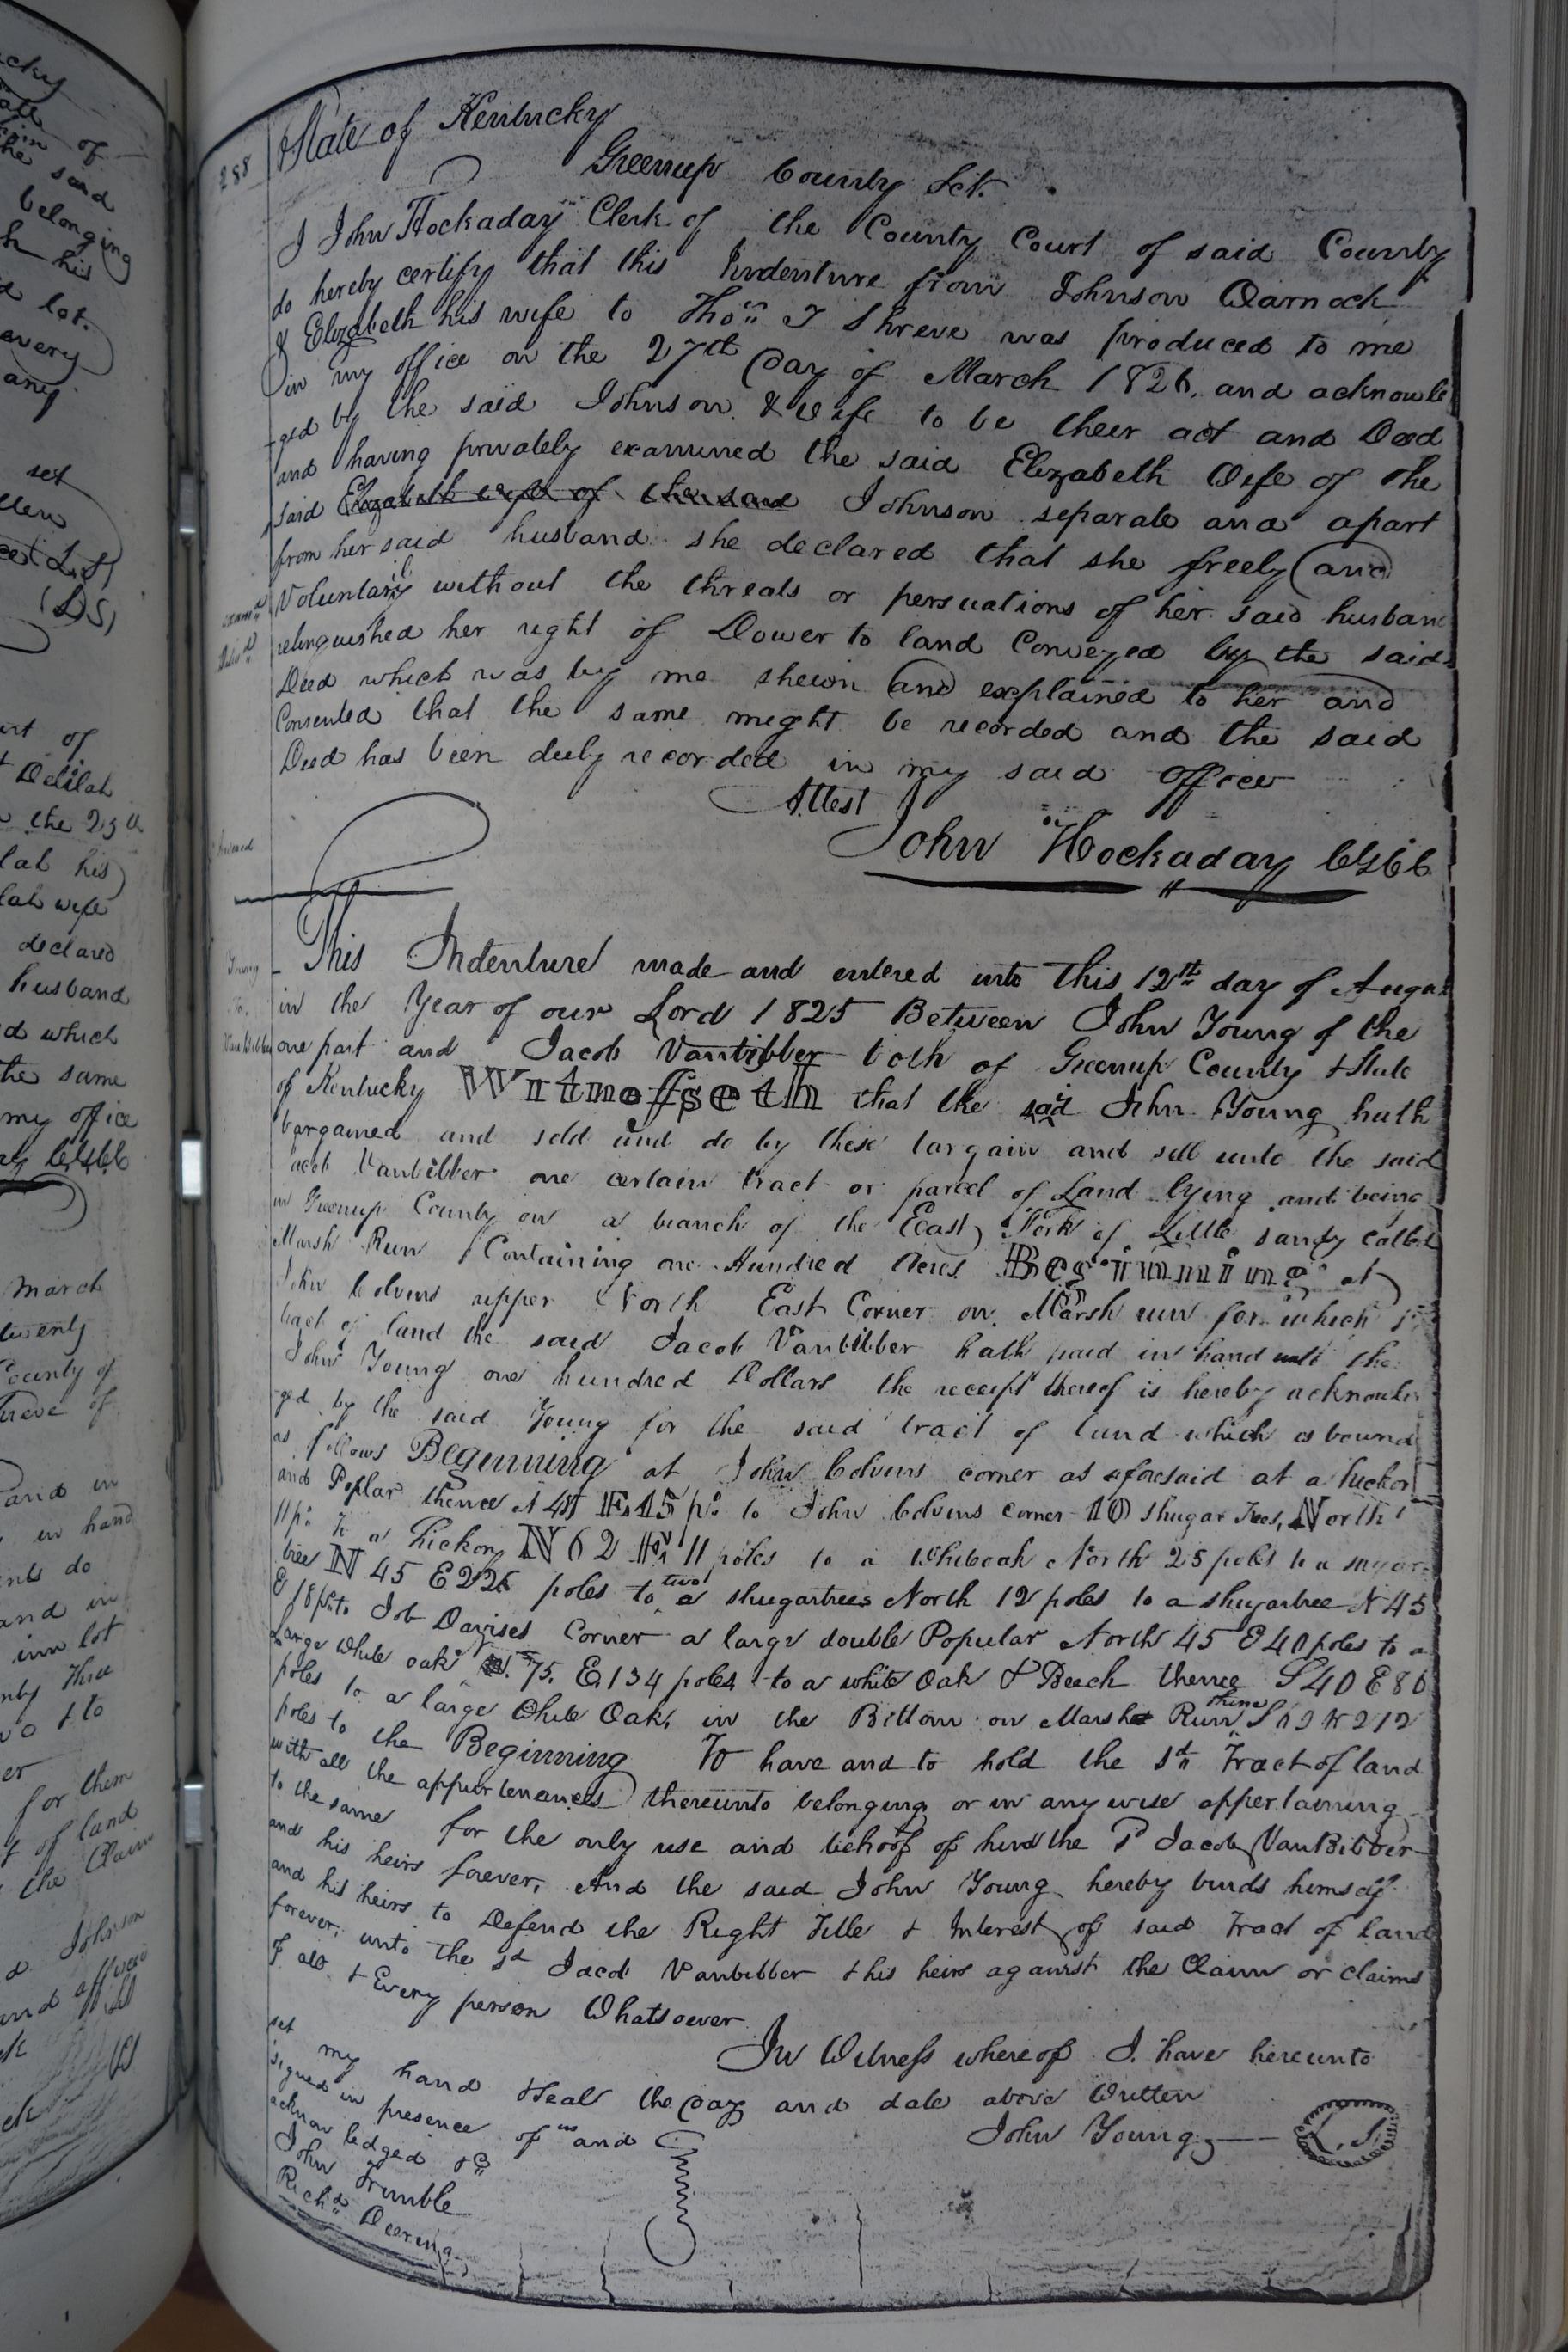 288
State of Kentucky
Greenup County Sct.
I John Hockaday Clerk of the County Court of said County
do hereby certify that this Indenture from Johnson
& Elizabeth his wife to Thos. J Shreve was produced to me
in my office on the 27th Day of March 1826 and acknowle
-ged by the said Johnson & wife to be their act and Deed
and having privately examined the said Elizabeth Wife of the
said Elizabeth wife of the said Johnson separate and apart
from her said husband she declared that she freely and
Voluntarily without the threats or persuations of her said husban
relinquished her right of Dower to land Conveyed by the said
Deed which was by me shewn and explained to her and
Consented that the same might be recorded and the said
Deed has been duly recorded in my said office
Attest
John Hockaday CGCC
Young
To
Vanbibber
This Indenture made and entered into this 12th day of August
in the Year of our Lord 1825 Between John Young of the
one part and Jacob Vanbibber both of Greenup County & State
of Kentucky Witnesseth that the said John Young hath
bargained and sold and do by these bargain and sell unto the said
Jacob Vanbibber one certain tract or parcel of Land lying and being
in Greenup County on a branch of the East Fork of Little sandy called
Marsh Run Containing one Hundred Acres Beginning at
John Colvins upper North East Corner on Marsh run for which sd
tract of land the said Jacob Vanbibber hath paid in hand unto the
John Young one hundred Dollars the receipt thereof is hereby acknowle
-ged by the said Young for the said tract of land which is bound
as follows Beginning at John Colvins corner as aforesaid at a hickor
and Poplar thence N 48 E 15 ps to John Colvins corner 10 shugar Trees, North
11 ps to a hickory N 62 E 11 poles to a Whiteoak North 25 poles to a sugar
tree N 45 E 226 poles to two shugartrees North 12 poles to a shugartree N 45
E 18 ps to Job Davises Corner a large double Popular North 45 E 40 poles to a
Large White oak 75. E. 134 poles to a white Oak & Beech thence S 40 E 86
poles to a large White Oak, in the Bottom on Marsh Run thence 212
poles to the Beginning To have and to hold the sd Tract of land
with all the appurtenances thereunto belonging or in any wise appertaining
to the same for the only use and behoof of him the sd Jacob VanBibber
and his heirs forever, And the said John Young hereby binds himself
and his heirs to Defend the Right Title & Interest of said Tract of land
forever, unto the sd Jacob Vanbibber & his heirs against the Claim or claims
of all & Every person Whatsoever
In Witness whereof I have hereunto
set my hand & Seal the Day and date above Written
signed in presence of us and
acknowledged &c
John Young L. S.
John Trimble
Richd Deering